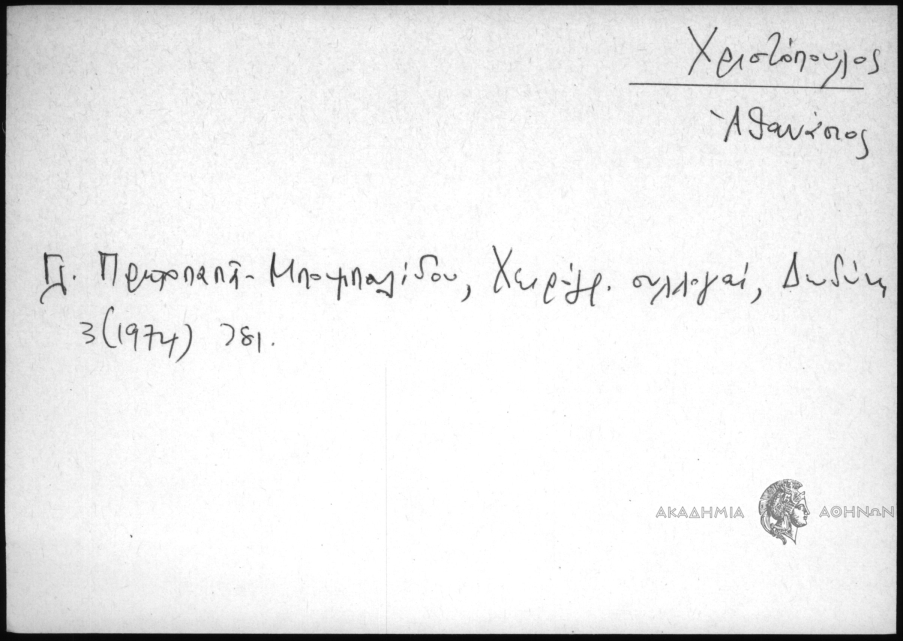 Χριστόπουλος
Ἀθανάσιος
Γλ. Πρωτοπαπᾶ-Μπουμπουλίδου, Χειρόγρ. συλλογαί, Δωδώνη
3(1974) 381.
ΑΚΑΔΗΜΙΑ ΑΘΗΝΩΝ